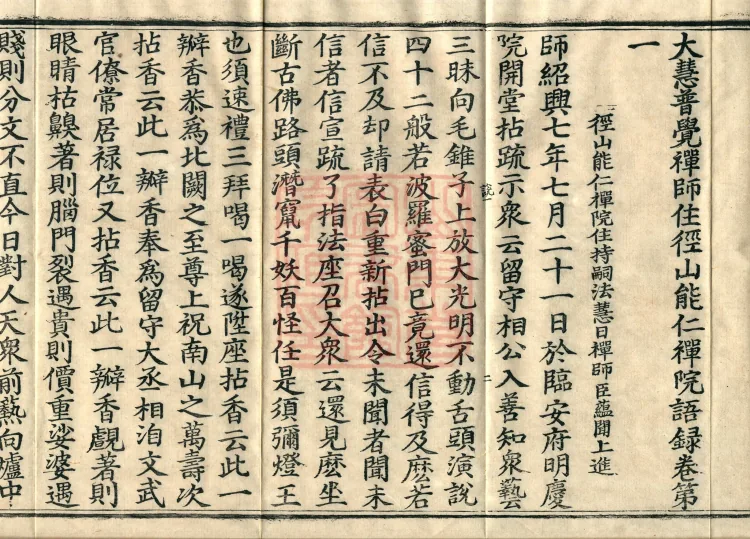 大慧普覺禪師住徑山能仁禪院語録卷第
一
徑山能仁禪院住持嗣法慧日禪師臣蘊聞上進
師紹興七年七月二十一日於臨安府明慶
院開堂拈疏示衆云留守相公入善知衆藝
三昧向毛錐子上放大光明不動舌頭演說
四十二般若波羅蜜門已竟還信得及麽若
信不及却請表白重新拈出令未聞者聞未
信者信宣疏了指法座召大衆云還見麽坐
斷古佛路頭潛竄千妖百怪任是須彌燈王
也須速禮三拜喝一喝遂陞座拈香云此一
瓣香恭爲北闕之至尊上祝南山之萬壽次
拈香云此一瓣香奉爲留守大丞相洎文武
官僚常居禄位又拈香云此一瓣香覷著則
眼睛枯齅著則腦門裂遇貴則價重娑婆遇
賤則分文不直今日對人天衆前爇向爐中